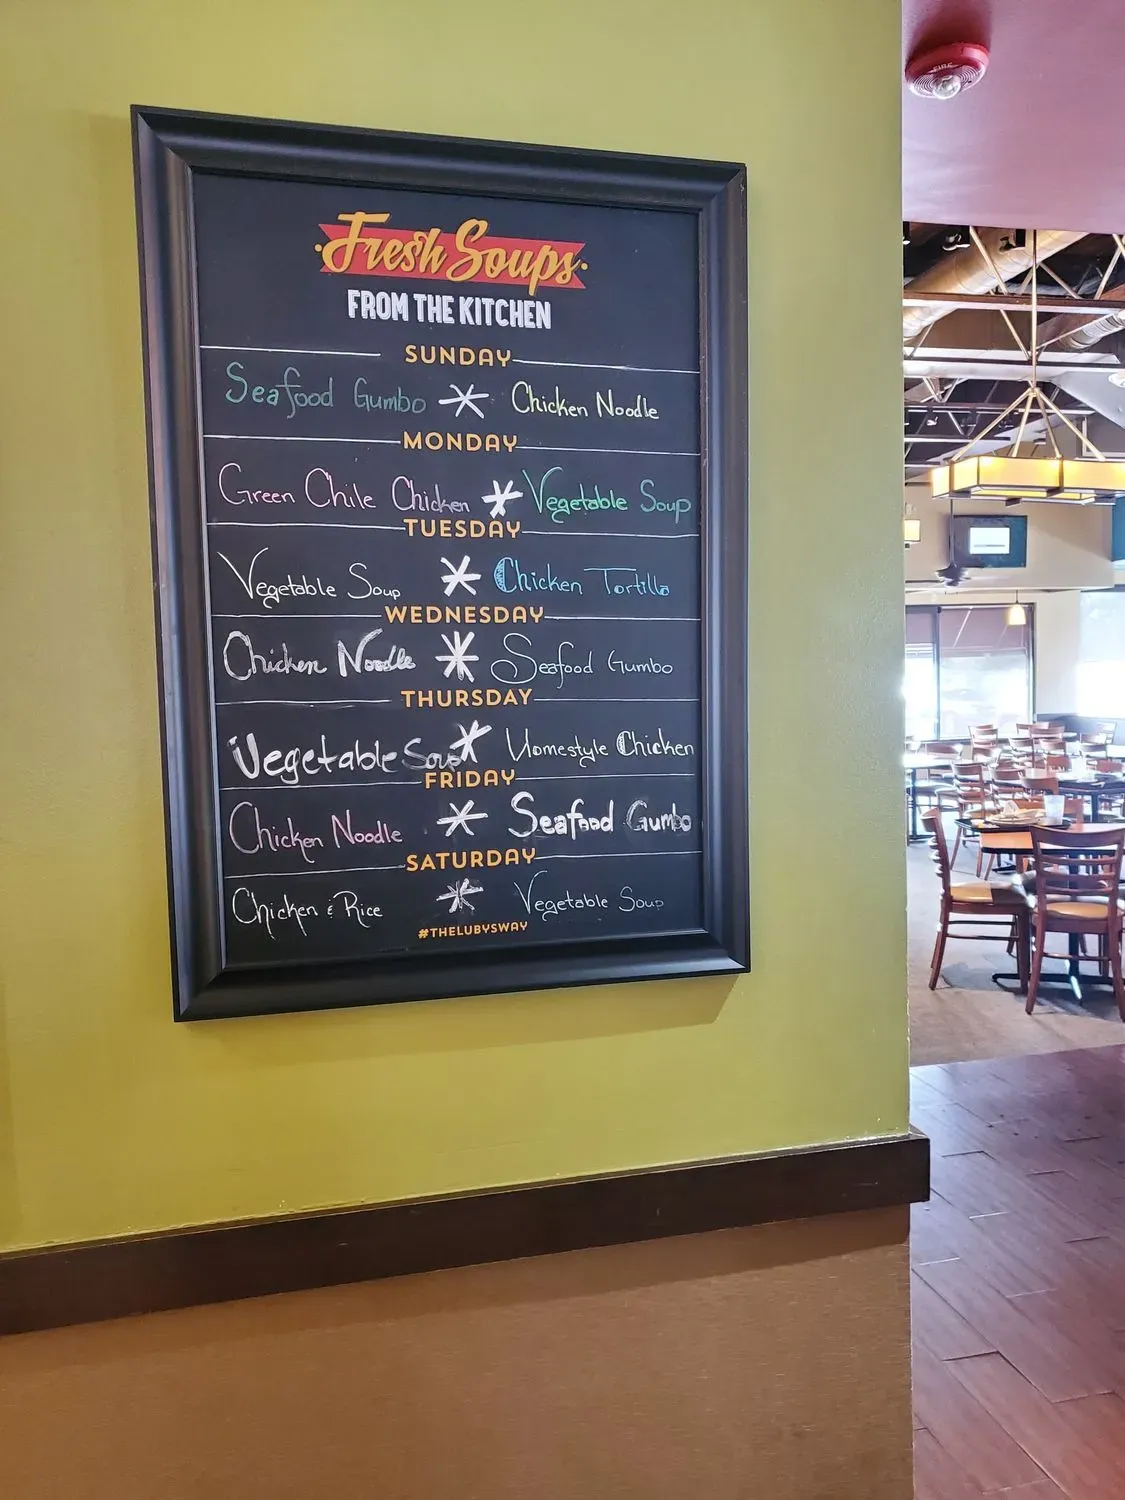 Fresh Soups
FROM THE KITCHEN
SUNDAY
Seafood Gumbo * Chicken Noodle
MONDAY
Green Chile Chicken * Vegetable Soup
TUESDAY
Vegetable Soup * Chicken Tortilla
WEDNESDAY
Chicken Noodle * Seafood Gumbo
THURSDAY
Vegetable Soup * Homestyle Chicken
FRIDAY
Chicken Noodle * Seafood Gumbo
SATURDAY
Chicken & Rice * Vegetable Soup
#THELUBYSWAY
FIRE